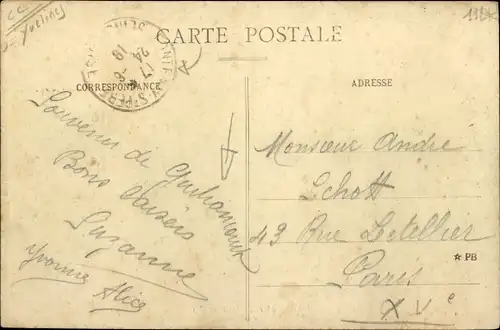 CC
Yvelines
CARTE POSTALE
CORRESPONDANCE
ADRESSE
17 - 6
24
19
Souvenir de
Bons baisers
Suzanne
Yvonne Alice
Monsieur André
Schott
43 Rue Letellier
Paris
XVe
★ PB